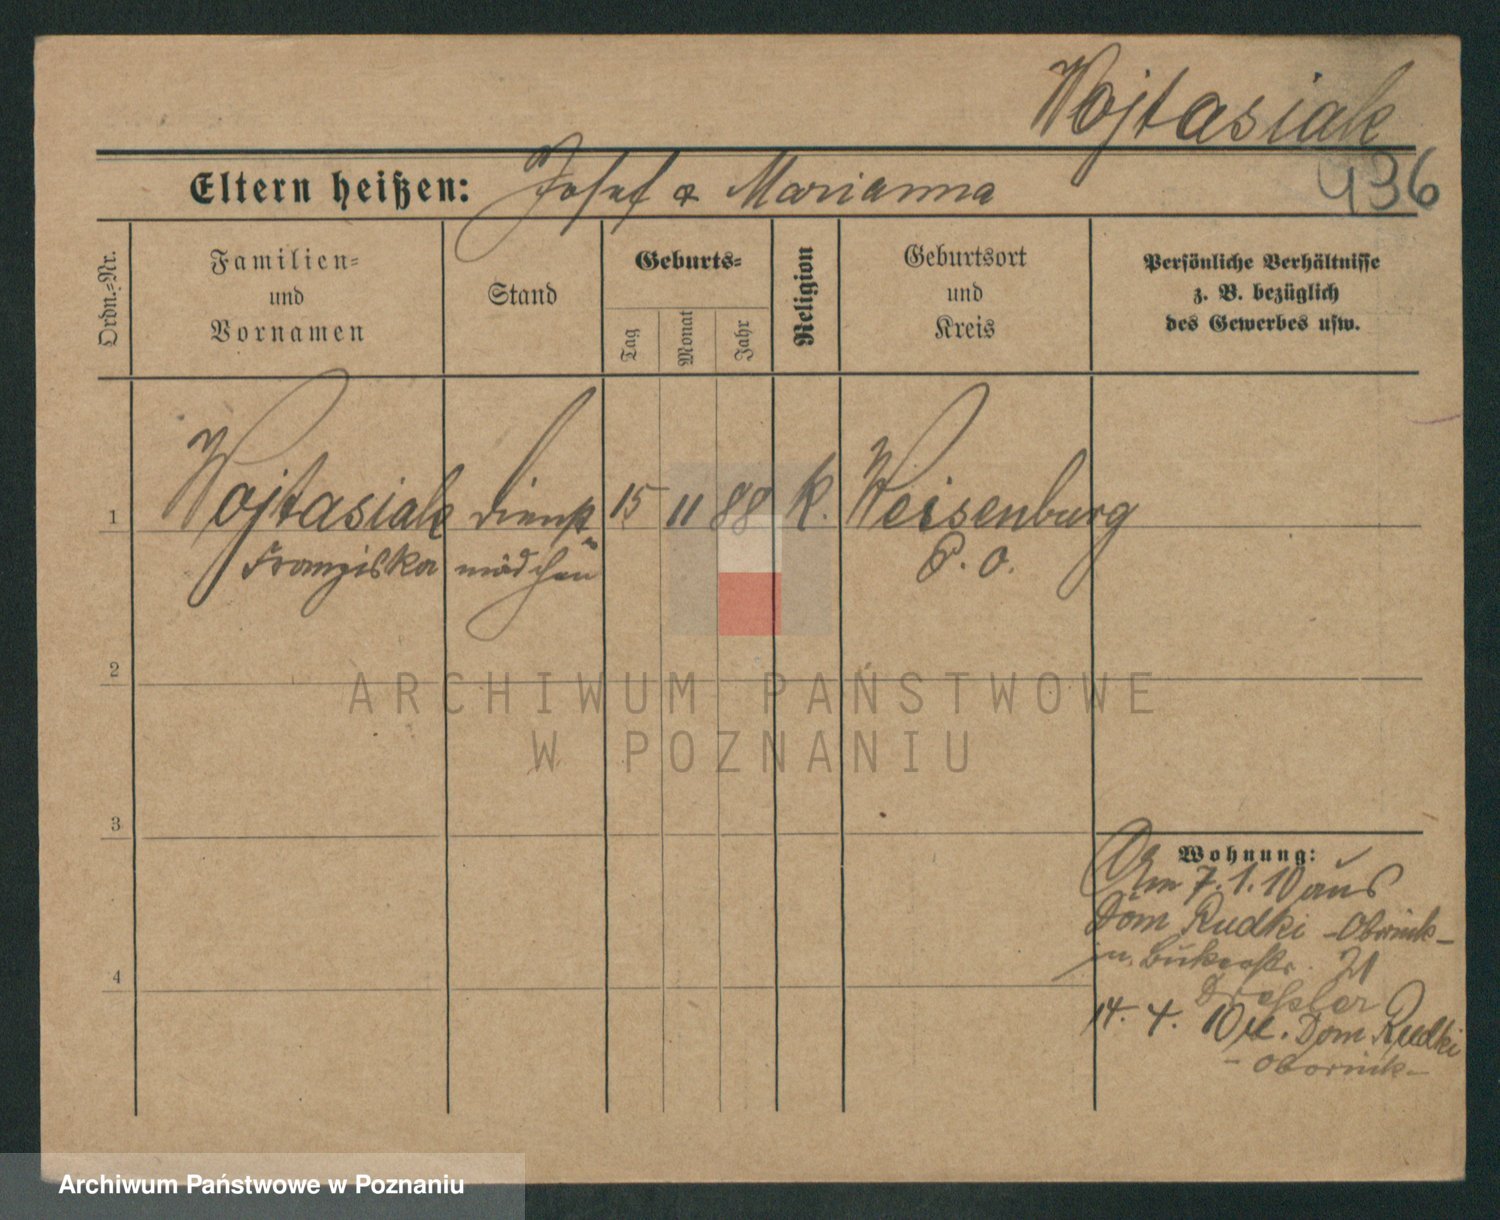 Wojtasiak
436
Eltern heißen: Josef & Marianna
Ordn.-Nr.
Familien-
und
Vornamen
Stand
Geburts-
Tag
Monat
Jahr
Religion
Geburtsort
und
Kreis
Persönliche Verhältnisse
z. B. bezüglich
des Gewerbes usw.
1 Wojtasiak Dienst 15 11 88 K. Weisenburg
Franziska mädchen P. O.
2
3
4
Wohnung:
Am 7.1.10 aus
Dom Rudki - Obornik -
n. Bukerstr. 21
14. 4. 10 n. Dom Rudki
- Obornik -
ARCHIWUM PAŃSTWOWE
W POZNANIU
Archiwum Państwowe w Poznaniu